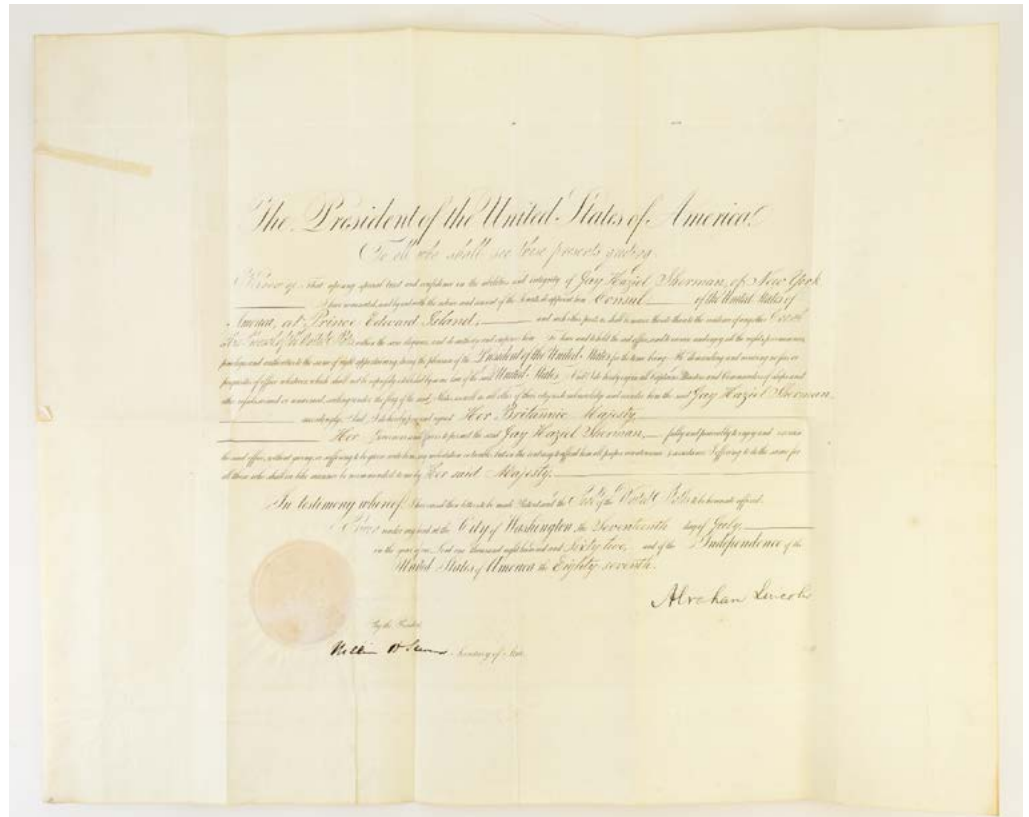 The President of the United States of America.
To all who shall see these presents greeting.
Know ye, That reposing special trust and confidence in the abilities and integrity of Jay Haziel Sherman, of New York
I have nominated, and by and with the advice and consent of the Senate do appoint him Consul of the United States of
America, at Prince Edward Island, and such other parts as shall be nearer thereto than to the residence of any other Consul
Vice Consul of the United States within the same allegiance, and do authorize and empower him To have and to hold the said office, and to exercise and enjoy all the rights, preeminences,
privileges and authorities to the same of right appertaining during the pleasure of the President of the United States for the time being. He demanding and receiving no fees or
perquisites of office whatever, which shall not be expressly established by some law of the said United States. And I do hereby enjoin all Captains, Masters and Commanders of ships and
other vessels armed or unarmed, sailing under the flag of the said States as well as all other of their citizens to acknowledge and consider him the said Jay Haziel Sherman
accordingly. And I do hereby pray and request Her Britannic Majesty,
Her Governors and Officers to permit the said Jay Haziel Sherman, fully and peaceably to enjoy and exercise
the said office, without giving or suffering to be given unto him any molestation or trouble, but on the contrary to afford him all proper countenance & assistance. I offering to do the same for
all those who shall in like manner be recommended to me by Her said Majesty.
In testimony whereof, I have caused these letters to be made Patent and the Seal of the United States to be hereunto affixed.
Given under my hand at the City of Washington the Seventeenth day of July,
in the year of our Lord one thousand eight hundred and Sixty two, and of the Independence of the
United States of America the Eighty seventh.
Abraham Lincoln
By the President,
William H Seward Secretary of State.